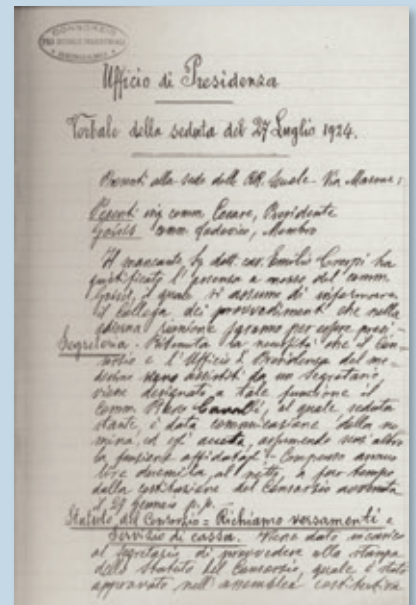 CONSORZIO
PRO SCUOLE INDUSTRIALI
BERGAMO
Ufficio di Presidenza
Verbale della seduta del 27 Luglio 1924.
Presenti alla sede delle RR. Scuole - Via Masone:
Pesenti ing. comm. Cesare, Presidente
comm. Lodovico, Membro
Il mancante Sig. dott. cav. Emilio Crespi ha
giustificato l'assenza a mezzo del comm.
il quale si assume di informare
il Collega dei provvedimenti che nella
odierna riunione saranno per essere presi -
Segreteria - Ritenuta la necessità che il Con-
sorzio e l'Ufficio di Presidenza del me-
desimo siano assistiti da un Segretario
viene designato a tale funzione il
comm. Cavalli, al quale, seduta
stante, è data comunicazione della no-
mina, ed egli accetta, assumendo senz'altro
la funzione affidatagli - Compenso annuo
lire duemila al netto, a far tempo
dalla costituzione del Consorzio avvenuta
il 27 Gennaio p.p.
Statuto del Consorzio = Richiamo versamenti e
Servizio di cassa. Viene dato incarico
al Segretario di provvedere alla stampa
dello Statuto del Consorzio, quale è stato
approvato nell'assemblea costitutiva